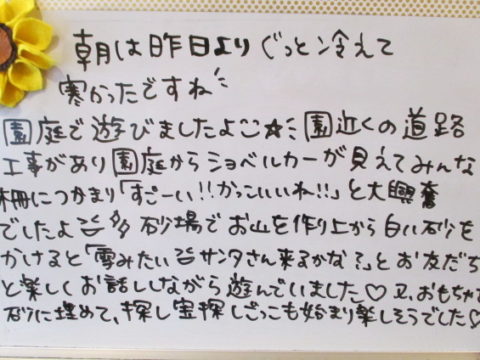 朝は昨日よりぐっと冷えて
寒かったですね
園庭で遊びましたよ☆ 園近くの道路
工事があり園庭からショベルカーが見えてみんな
柵につかまり「すごーい!!かっこいいね!!」と大興奮
でしたよ 砂場でお山を作り上から白い砂を
かけると「雪みたい サンタさん来るかな?」とお友だち
と楽しくお話ししながら遊んでいました♡又、おもちゃを
砂に埋めて、探し宝探しごっこも始まり楽しそうでした♡